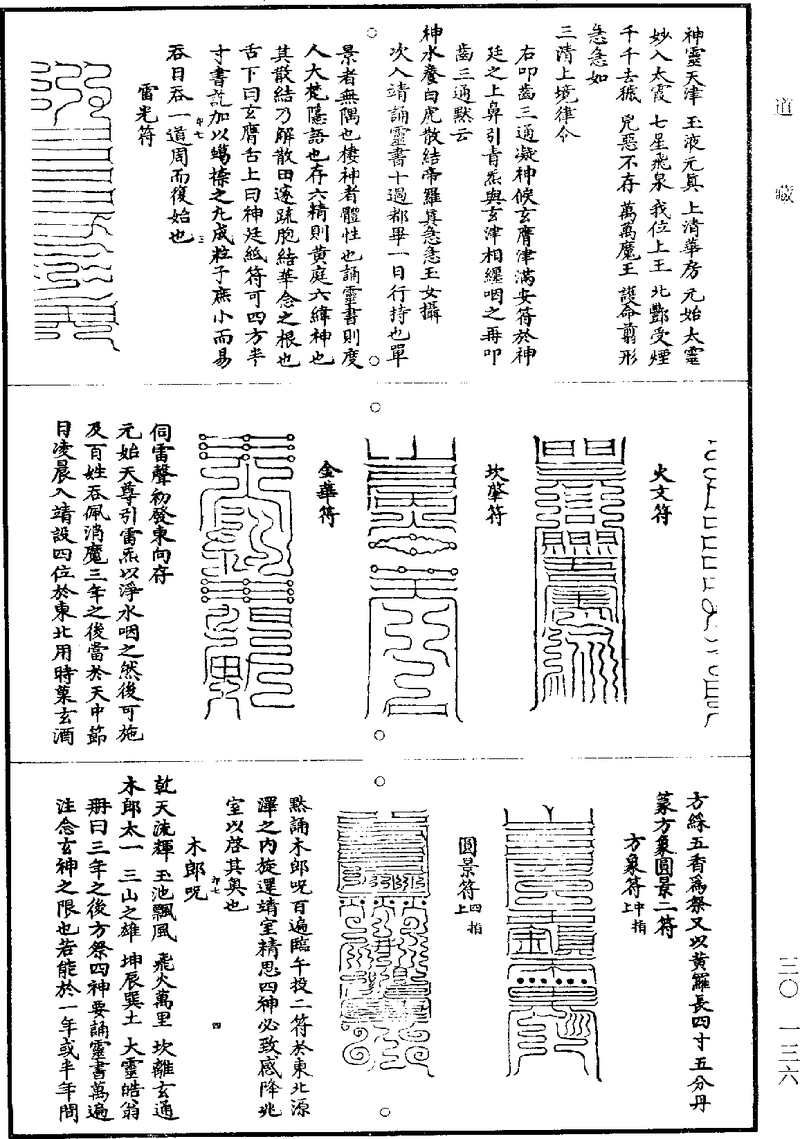 道藏
三〇 一三六
神靈天津 玉液元真 上清華房 元始太靈
妙入太霞 七星飛泉 我位上王 北酆受煙
千千去穢 兇惡不存 萬萬魔王 護命翦形
急急如
三清上境律令
右叩齒三通凝神候玄膺津滿安符於神
廷之上鼻引青炁與玄津相繆咽之再叩
齒三通黙云
神水養白虎散結帝羅真急急玉女攝
次入靖誦靈書十過都畢一日行持也單
景者無隅也棲神者體性也誦靈書則度
人大梵隱語也存六精則黄庭六緯神也
其散結乃解散田邃疏胞結華念之根也
舌下曰玄膺舌上曰神廷紙符可四方半
寸書訖加以蠟搽之九成粒子庶小而易
吞日吞一道周而復始也
雷光符
火文符
坎肇符
金華符
伺雷聲初發東向存
元始天尊引雷炁以淨水咽之然後可施
及百姓吞佩消魔三年之後當於天中節
日凌晨入靖設四位於東北用時菓玄酒
方綵五香爲祭又以黄羅長四寸五分丹
篆方象圓景二符
方象符 中指上
圓景符 四指上
黙誦木郎呪百遍臨午投二符於東北源
澤之内旋還靖室精思四神必致感降兆
室以啓其奥也
木郎呪
乾天流輝 玉池飄風 飛火萬里 坎離玄通
木郎太一 三山之雄 坤辰巽土 大靈皓翁
冊曰三年之後方祭四神要誦靈書萬遍
注念玄神之限也若能於一年或半年間